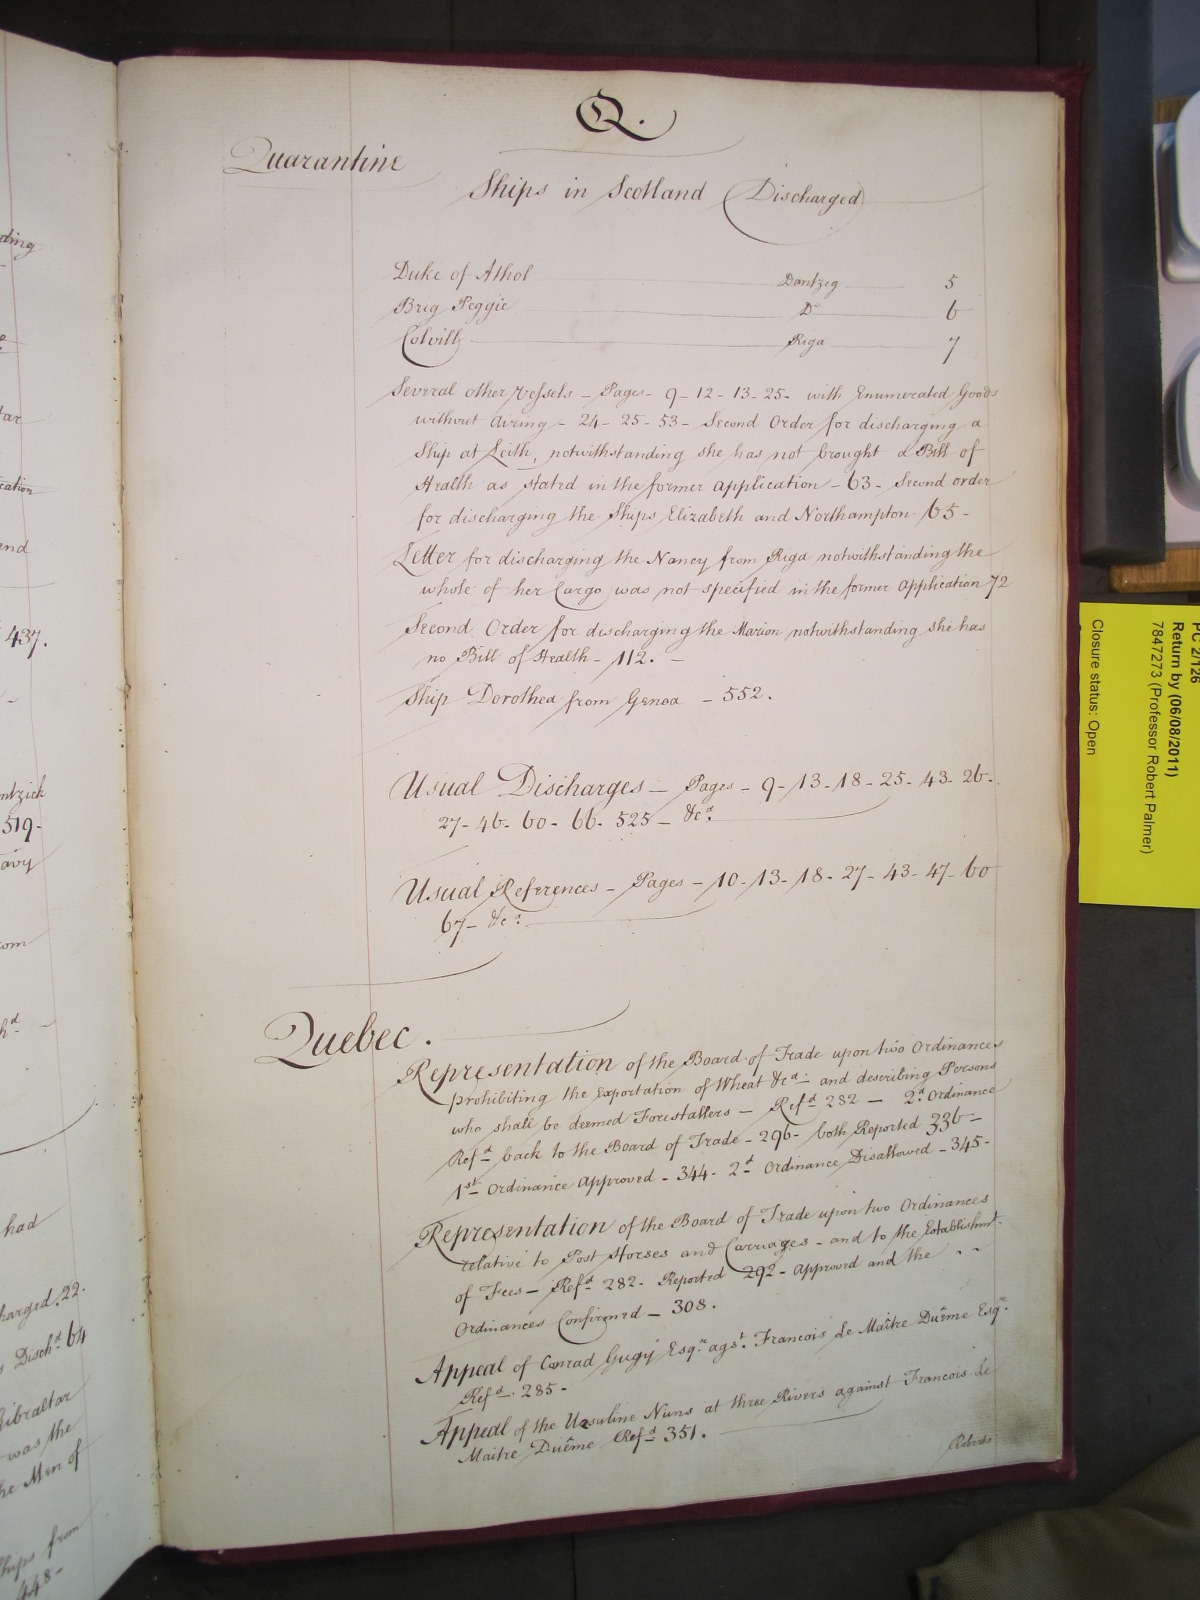 Q.
Quarantine
Ships in Scotland (Discharged)
Duke of Athol Dantzig 5
Brig Peggie Do 6
Colvill Riga 7
Several other Vessels - Pages - 9 - 12 - 13 - 25 - with Enumerated Goods
without airing - 24 - 25 - 53 - Second Order for discharging a
Ship at Leith, notwithstanding she has not brought a Bill of
Health as stated in the former application - 63 - Second order
for discharging the Ships Elizabeth and Northampton 65 -
Letter for discharging the Nancy from Riga notwithstanding the
whole of her Cargo was not specified in the former application 72
Second Order for discharging the Marion notwithstanding she has
no Bill of Health - 112. -
Ship Dorothea from Genoa - 552.
Usual Discharges - Pages - 9 - 13 - 18 - 25 - 43 - 26 -
27 - 46 - 60 - 66 - 525 - &ca.
Usual References - Pages - 10 - 13 - 18 - 27 - 43 - 47 - 60
67 - &ca
Quebec.
Representation of the Board of Trade upon two Ordinances
prohibiting the Exportation of Wheat &ca. and describing Persons
who shall be deemed Forestallers - Refd 282 - 2d. Ordinance
Refd back to the Board of Trade - 296 - both Reported 336 -
1st Ordinance Approved - 344 - 2d Ordinance Disallowed - 345 -
Representation of the Board of Trade upon two Ordinances
relative to Post Horses and Carriages - and to the Establishmt.
of Fees - Refd 282 - Reported 292 - Approved and the
Ordinances Confirmed - 308.
Appeal of Conrad Gugy Esqr. agst. Francois Le Maître Duême Esqr.
Refd. 285 -
Appeal of the Ursuline Nuns at three Rivers against Francois Le
Maitre Duême Refd 351.
Roberts
ding
tar
cation
end
437.
ntzick
519 -
avy
com
hd
had
charged. 22.
Dischd. 64
Gibraltar
was the
he Men of
Ships from
448 -
PC 2/126
Return by (06/08/2011)
7847273 (Professor Robert Palmer)
Closure status: Open